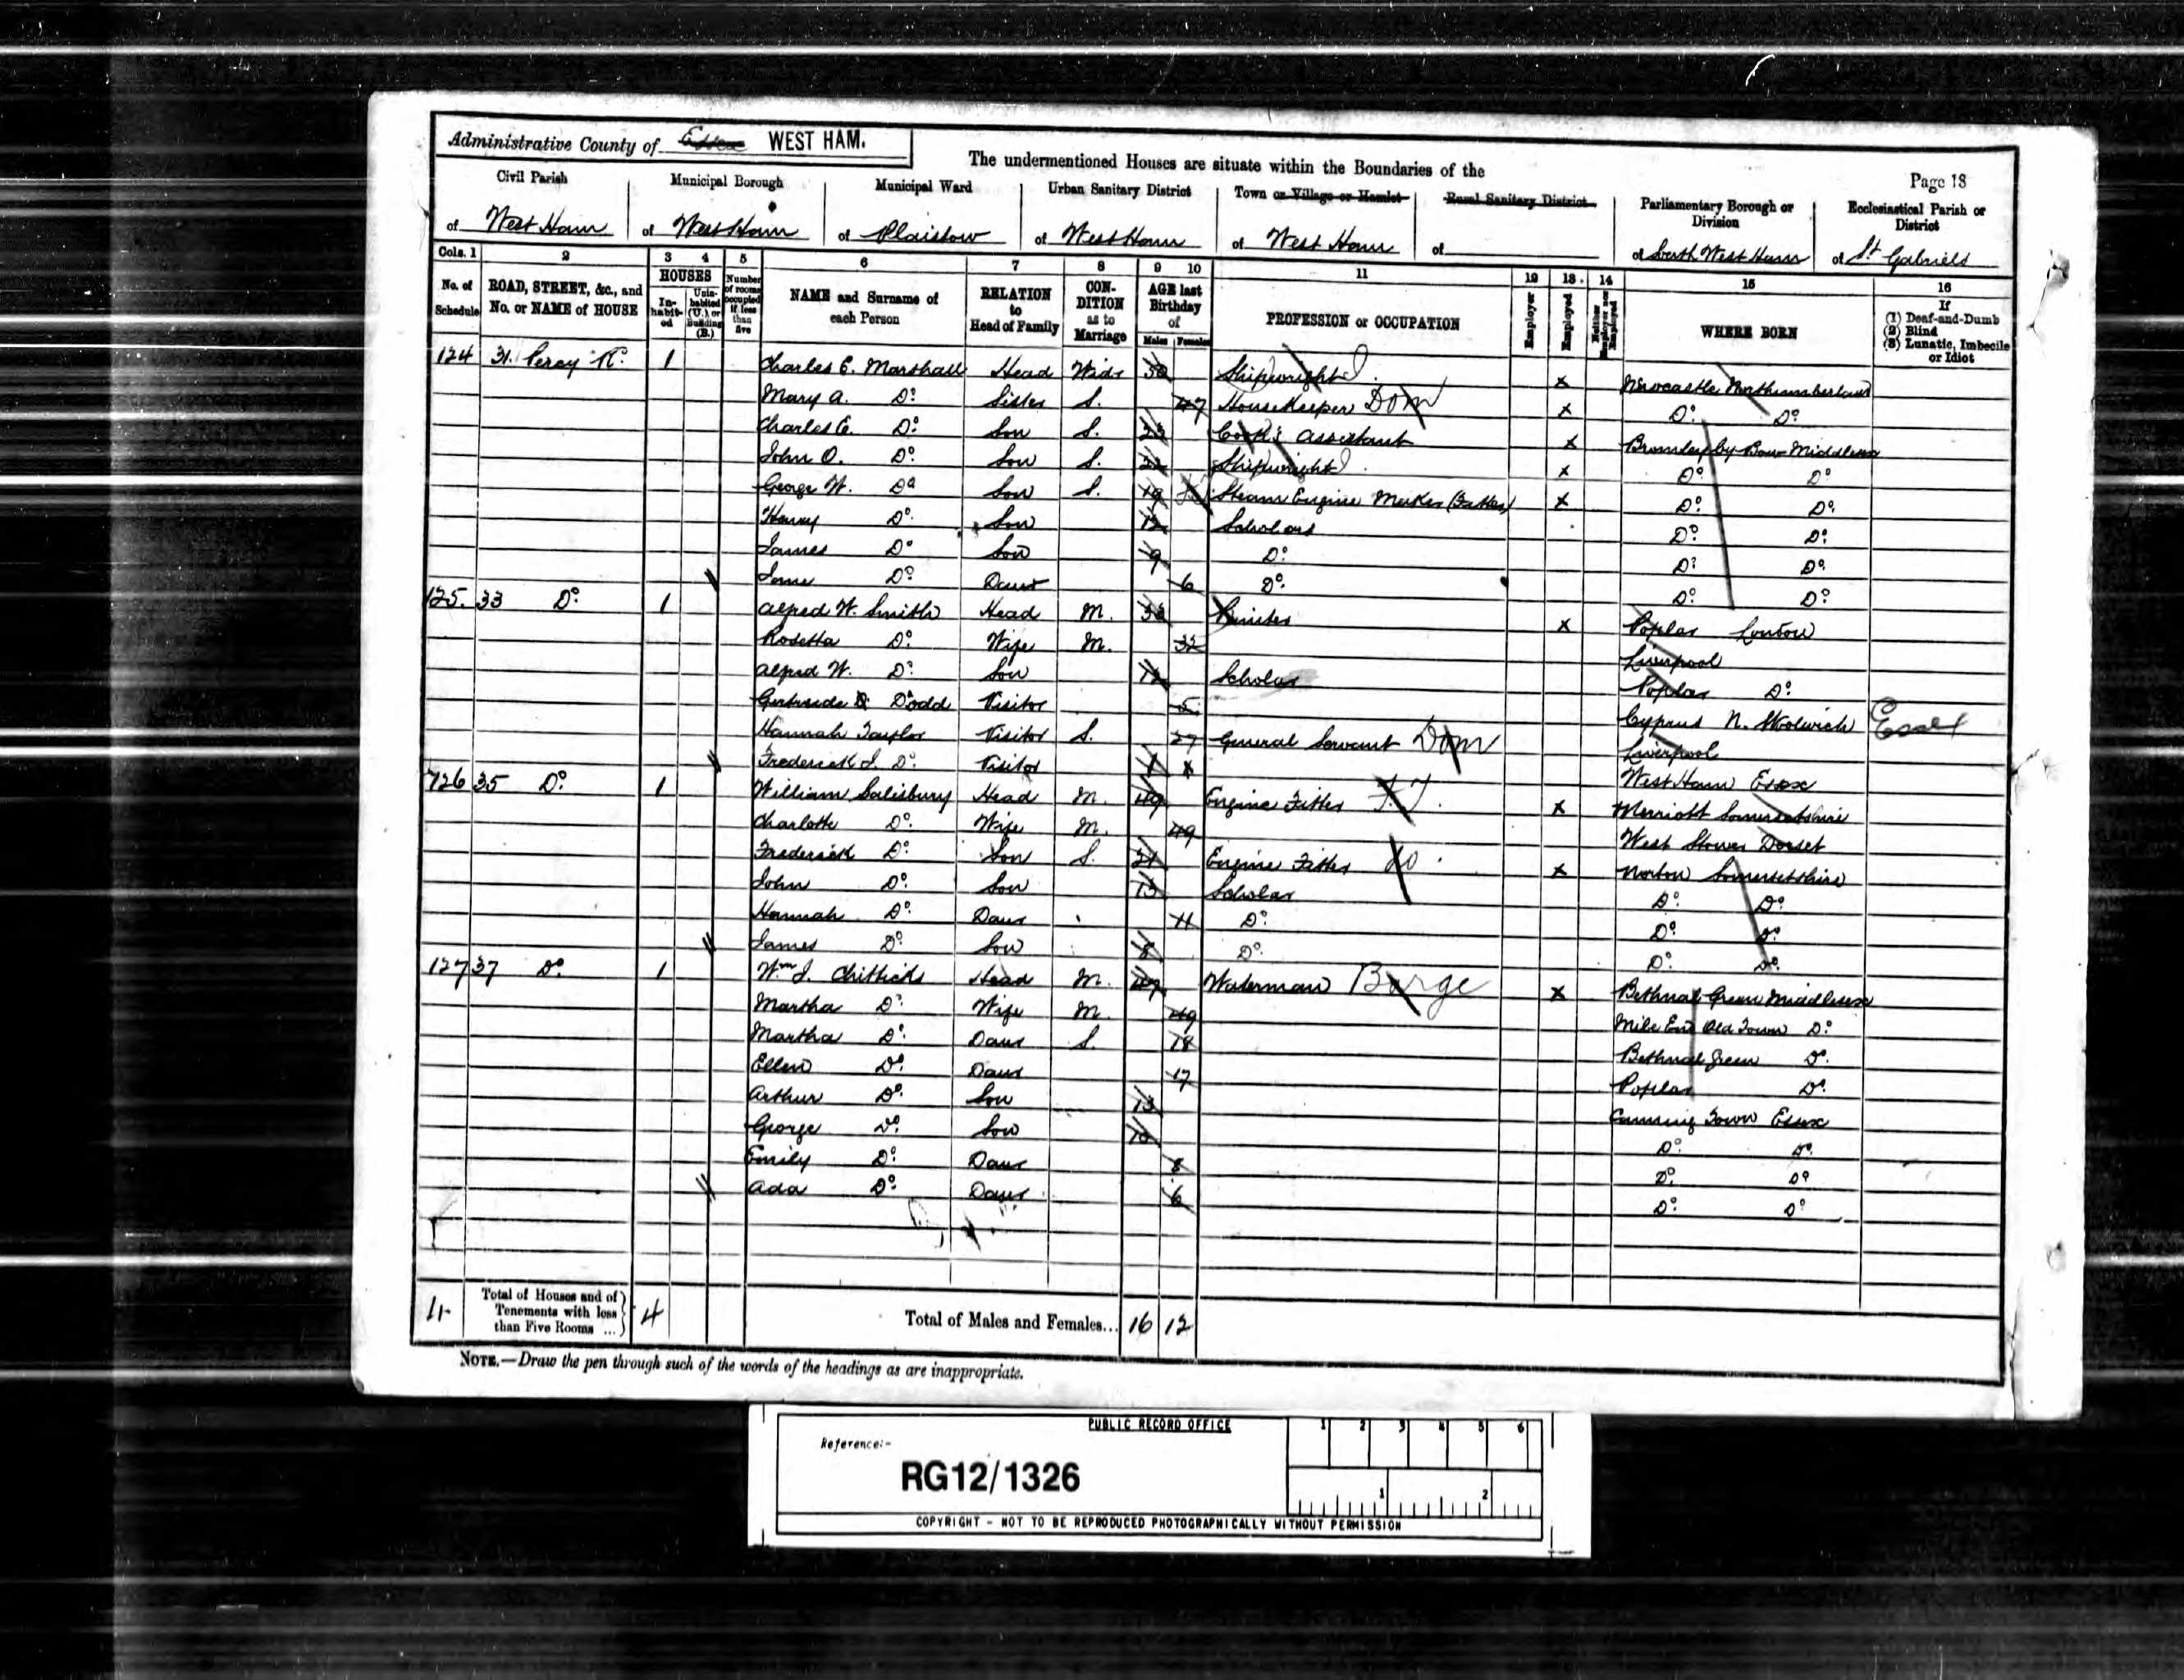 Administrative County of Essex WEST HAM.
The undermentioned Houses are situate within the Boundaries of the
Page 18
Civil Parish Municipal Borough Municipal Ward Urban Sanitary District Town or Village or Hamlet Rural Sanitary District Parliamentary Borough or Division Ecclesiastical Parish or District
of West Ham of West Ham of Plaistow of West Ham of West Ham of of South West Ham of St Gabriels
Cols. 1 2 3 4 5 6 7 8 9 10 11 12 13 14 15 16
No. of Schedule ROAD, STREET, &c., and No. or NAME of HOUSE HOUSES In-habit-ed Unin-habited (U.), or Building (B.) Number of rooms occupied if less than five NAME and Surname of each Person RELATION to Head of Family CON-DITION as to Marriage AGE last Birthday of Males Females PROFESSION or OCCUPATION Employer Employed Neither Employer nor Employed WHERE BORN If (1) Deaf-and-Dumb (2) Blind (3) Lunatic, Imbecile or Idiot
124 31. Percy Rd 1 Charles E. Marshall Head Widr Shipwright x Newcastle Northumberland
Mary A. Do Sister S. 47 Housekeeper Dom x Do Do
Charles E. Do Son S. 23 Cook's Assistant x Bromley by Bow Middlesex
John O. Do Son S. Shipwright x Do Do
George W. Do Son S. 19 Steam Engine Maker (Fitter) x Do Do
Henry Do Son 12 Scholars Do Do
James Do Son 9 Do Do Do
Do Daur 6 Do Do Do
125. 33 Do 1 Alfred W. Smith Head M. x Poplar London
Rosetta Do Wife M. 32 Liverpool
Alfred W. Do Son 12 Scholar Poplar Do
Gertrude Dodd Visitor 5 Cyprus N. Woolwich Essex
Hannah Taylor Visitor S. 27 General Servant Dom Liverpool
Frederick J. Do Visitor 1 West Ham Essex
126 35 Do 1 William Salisbury Head M. 49 Engine Fitter F.T. x Merriott Somersetshire
Charlotte Do Wife M. 49 West Stower Dorset
Frederick Do Son S. 21 Engine Fitter do x Norton Somersetshire
John Do Son 13 Scholar Do Do
Hannah Do Daur 11 Do Do Do
James Do Son 8 Do Do Do
127 37 Do 1 Wm J. Chittick Head M. 49 Waterman Barge x Bethnal Green Middlesex
Martha Do Wife M 49 Mile End Old Town Do
Martha Do Daur S. 18 Bethnal Green Do
Ellen Do Daur 17 Poplar Do
Arthur Do Son 13 Canning Town Essex
George Do Son 10 Do Do
Emily Do Daur 8 Do Do
Ada Do Daur 6 Do Do
4 Total of Houses and of Tenements with less than Five Rooms ... 4 Total of Males and Females... 16 12
NOTE.—Draw the pen through such of the words of the headings as are inappropriate.
PUBLIC RECORD OFFICE 1 2 3 4 5 6
Reference:-
RG12/1326
1 2
COPYRIGHT - NOT TO BE REPRODUCED PHOTOGRAPHICALLY WITHOUT PERMISSION